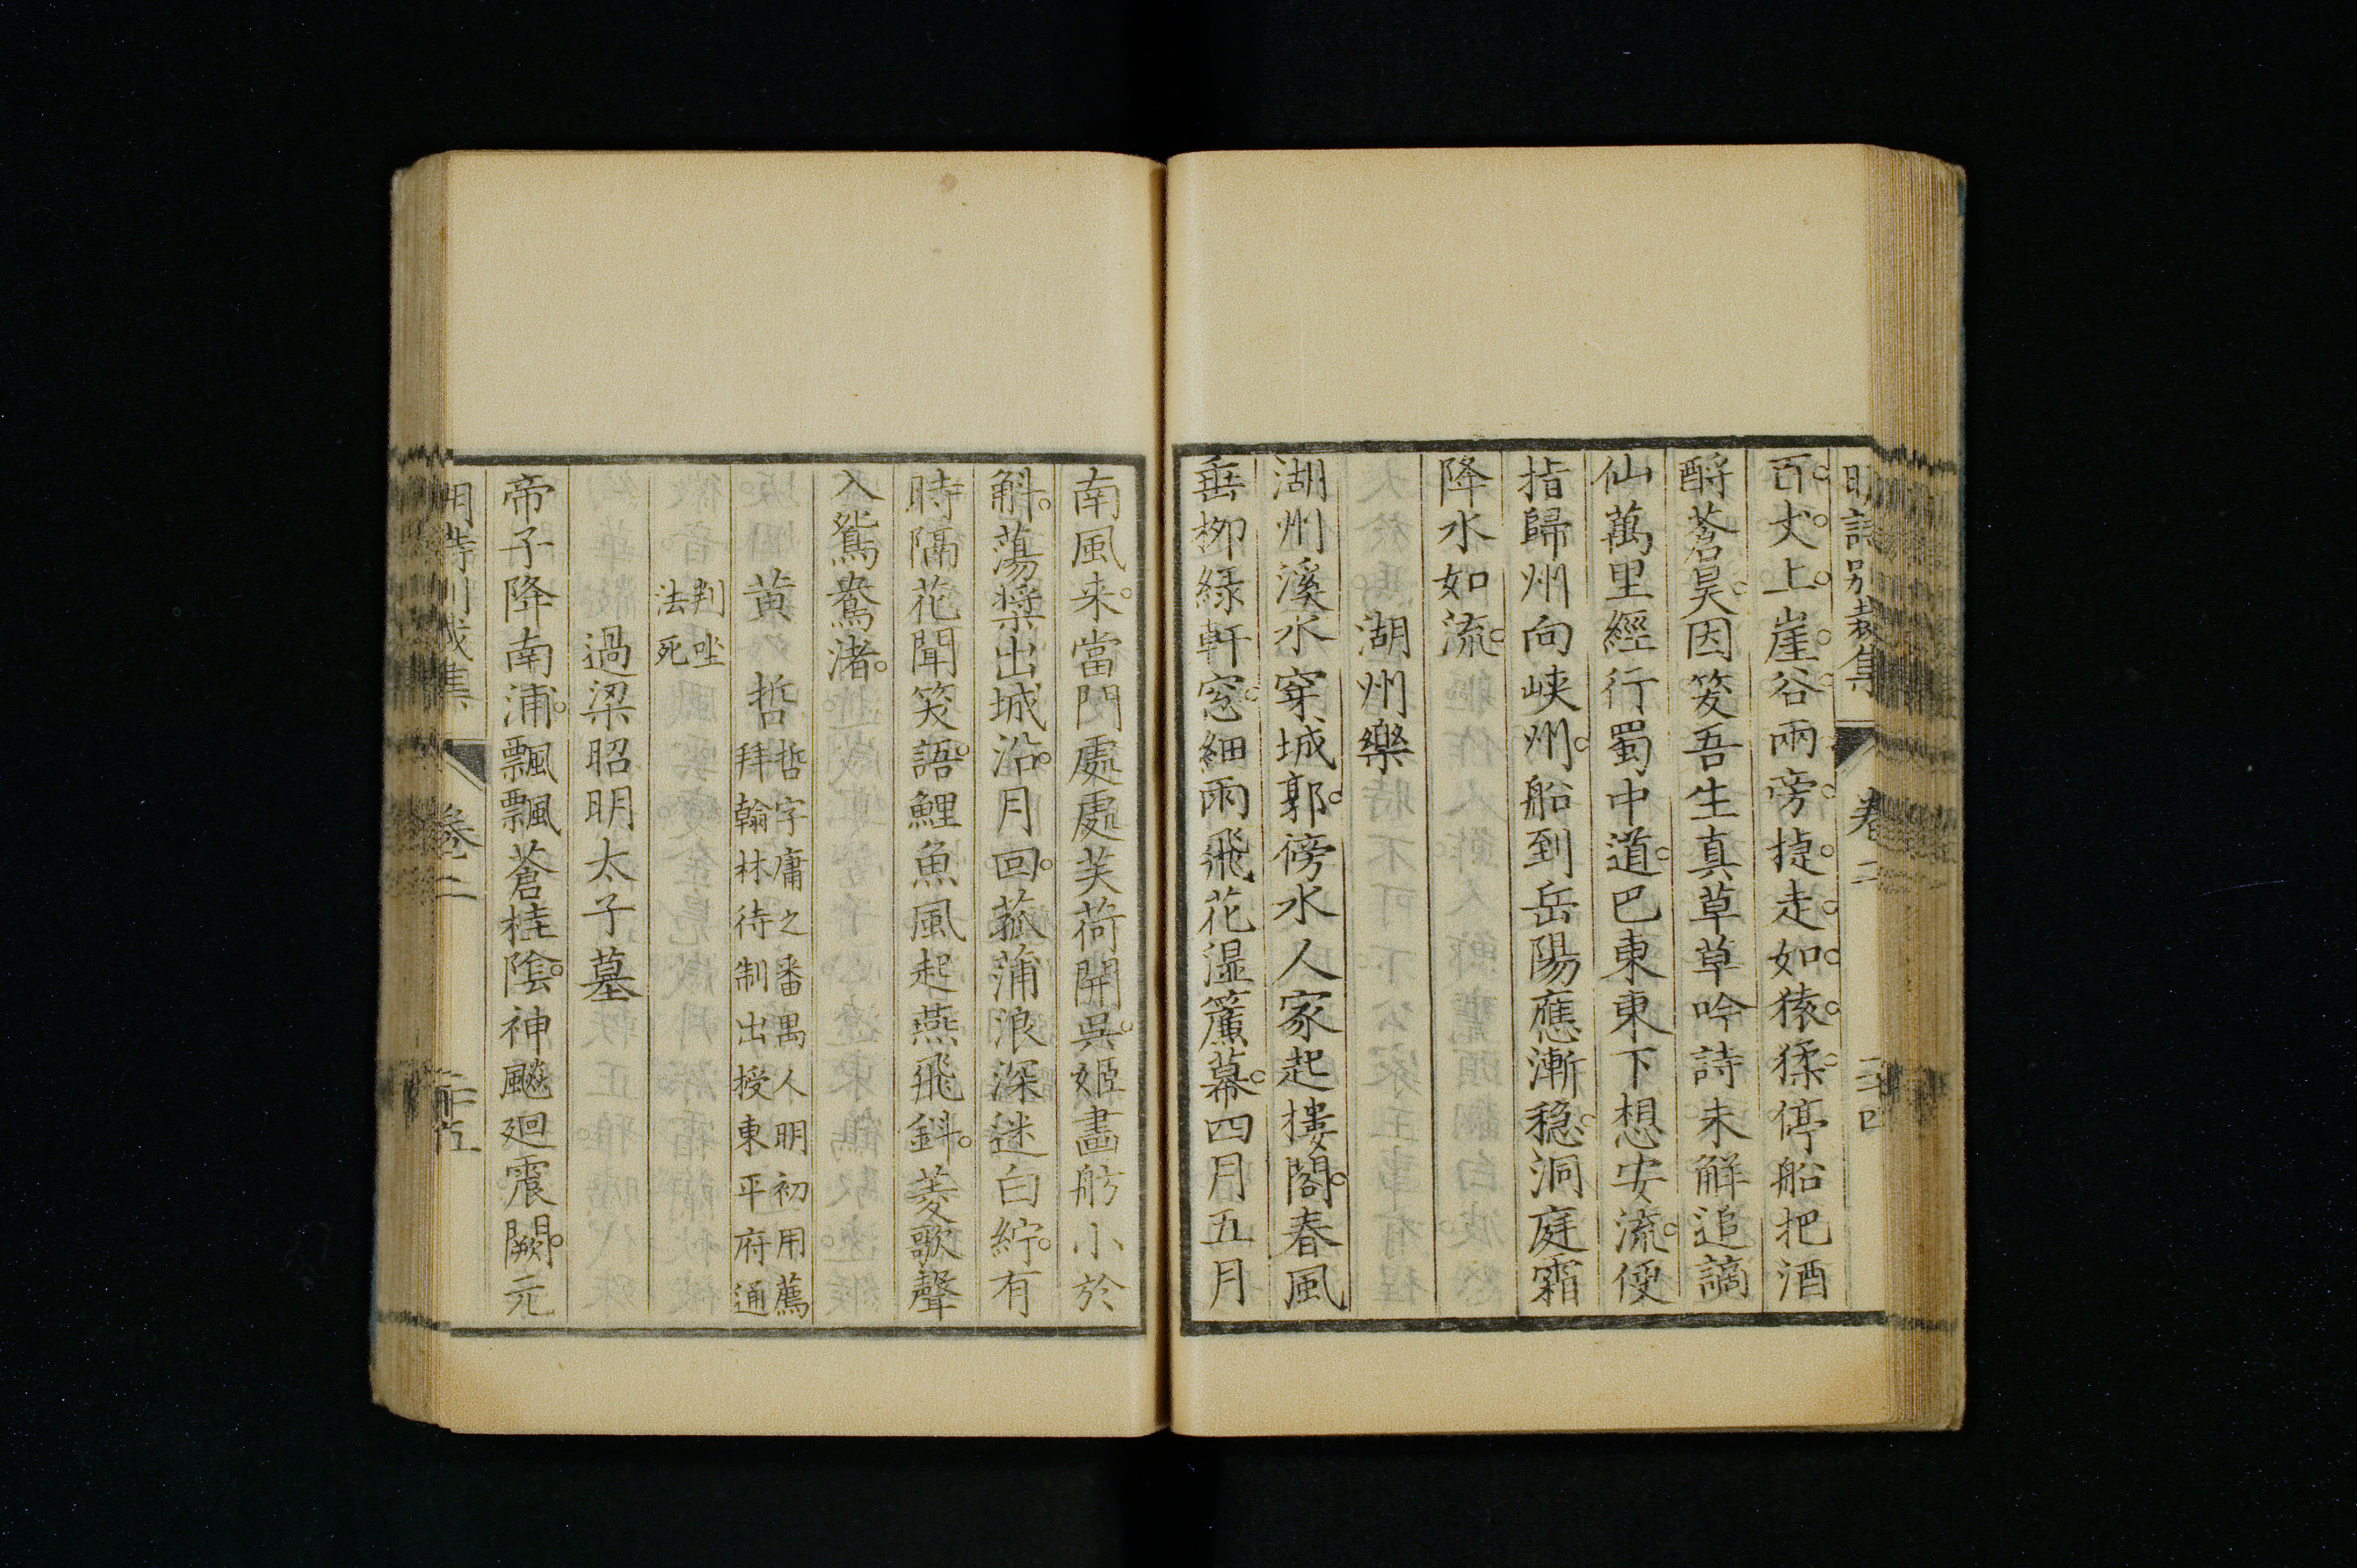 明詩別裁集 卷二 二十四
百丈上崖谷兩旁捷走如猿猱停船把酒
酹蒼昊因笑吾生真草草吟詩未解追謫
仙萬里經行蜀中道巴東東下想安流便
指歸州向峽州船到岳陽應漸穏洞庭霜
降水如流
湖州樂
湖州溪水穿城郭傍水人家起樓閣春風
垂栁緑軒窓細雨飛花濕簾幕四月五月
南風来當門處處芙蓉開吳姬畫舫小於
斛蕩槳出城沿月回菰蒲浪深迷白紵有
時隔花聞笑語鯉魚風起燕飛斜菱歌聲
入鴛鴦渚
黄哲 哲字庸之番禺人明初用薦
拜翰林待制出授東平府通
判坐
法死
過梁昭明太子墓
帝子降南浦飄飄蒼桂陰神飇廻震闕元
卷二